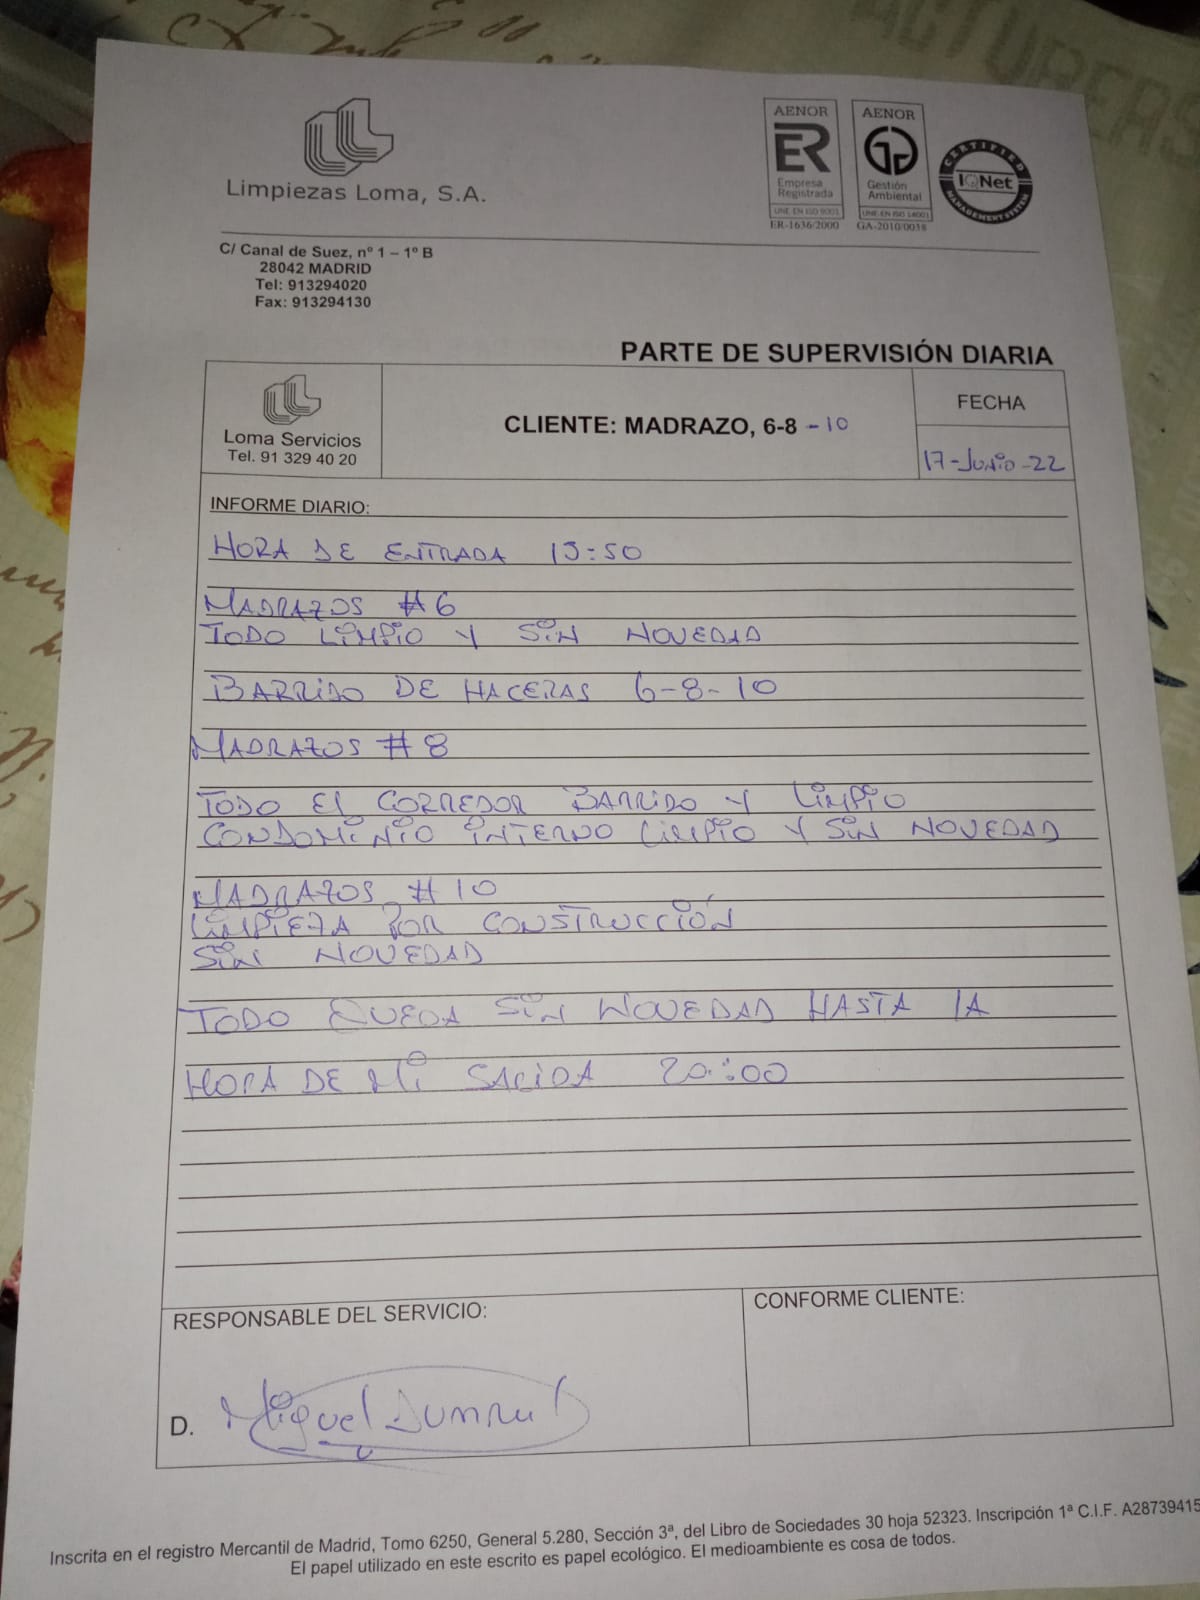 Limpiezas Loma, S.A.
AENOR
ER
Empresa
Registrada
UNE-EN ISO 9001
ER-1636/2000
AENOR
Gestión
Ambiental
UNE-EN ISO 14001
GA-2010/0038
CERTIFIED
IQNet
MANAGEMENT SYSTEM
C/ Canal de Suez, nº 1 – 1º B
28042 MADRID
Tel: 913294020
Fax: 913294130
PARTE DE SUPERVISIÓN DIARIA
Loma Servicios
Tel. 91 329 40 20
CLIENTE: MADRAZO, 6-8 - 10
FECHA
17-Junio-22
INFORME DIARIO:
HORA DE ENTRADA 13:50
MADRAZOS #6
TODO LIMPIO Y SIN NOVEDAD
BARRIDO DE HACERAS 6-8-10
MADRAZOS #8
TODO EL CORREDOR BARRIDO Y LIMPIO
CONDOMINIO INTERNO LIMPIO Y SIN NOVEDAD
MADRAZOS #10
LIMPIEZA POR CONSTRUCCIÓN
SIN NOVEDAD
TODO QUEDA SIN NOVEDAD HASTA LA
HORA DE MI SALIDA 20:00
RESPONSABLE DEL SERVICIO:
CONFORME CLIENTE:
D. Miguel
Inscrita en el registro Mercantil de Madrid, Tomo 6250, General 5.280, Sección 3ª, del Libro de Sociedades 30 hoja 52323. Inscripción 1ª C.I.F. A28739415
El papel utilizado en este escrito es papel ecológico. El medioambiente es cosa de todos.